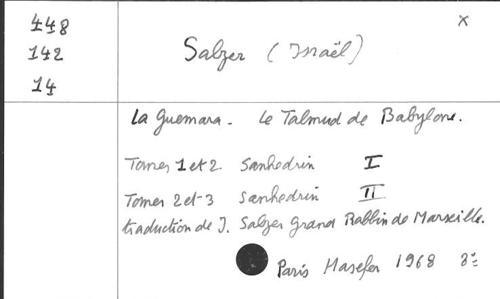 448
142
14
x
Salzer (Israël)
La Guemara - Le Talmud de Babylone.
Tomes 1 et 2 Sanhedrin I
Tomes 2 et 3 Sanhedrin II
traduction de I. Salzer Grand Rabbin de Marseille.
Paris Masefer 1968 8°